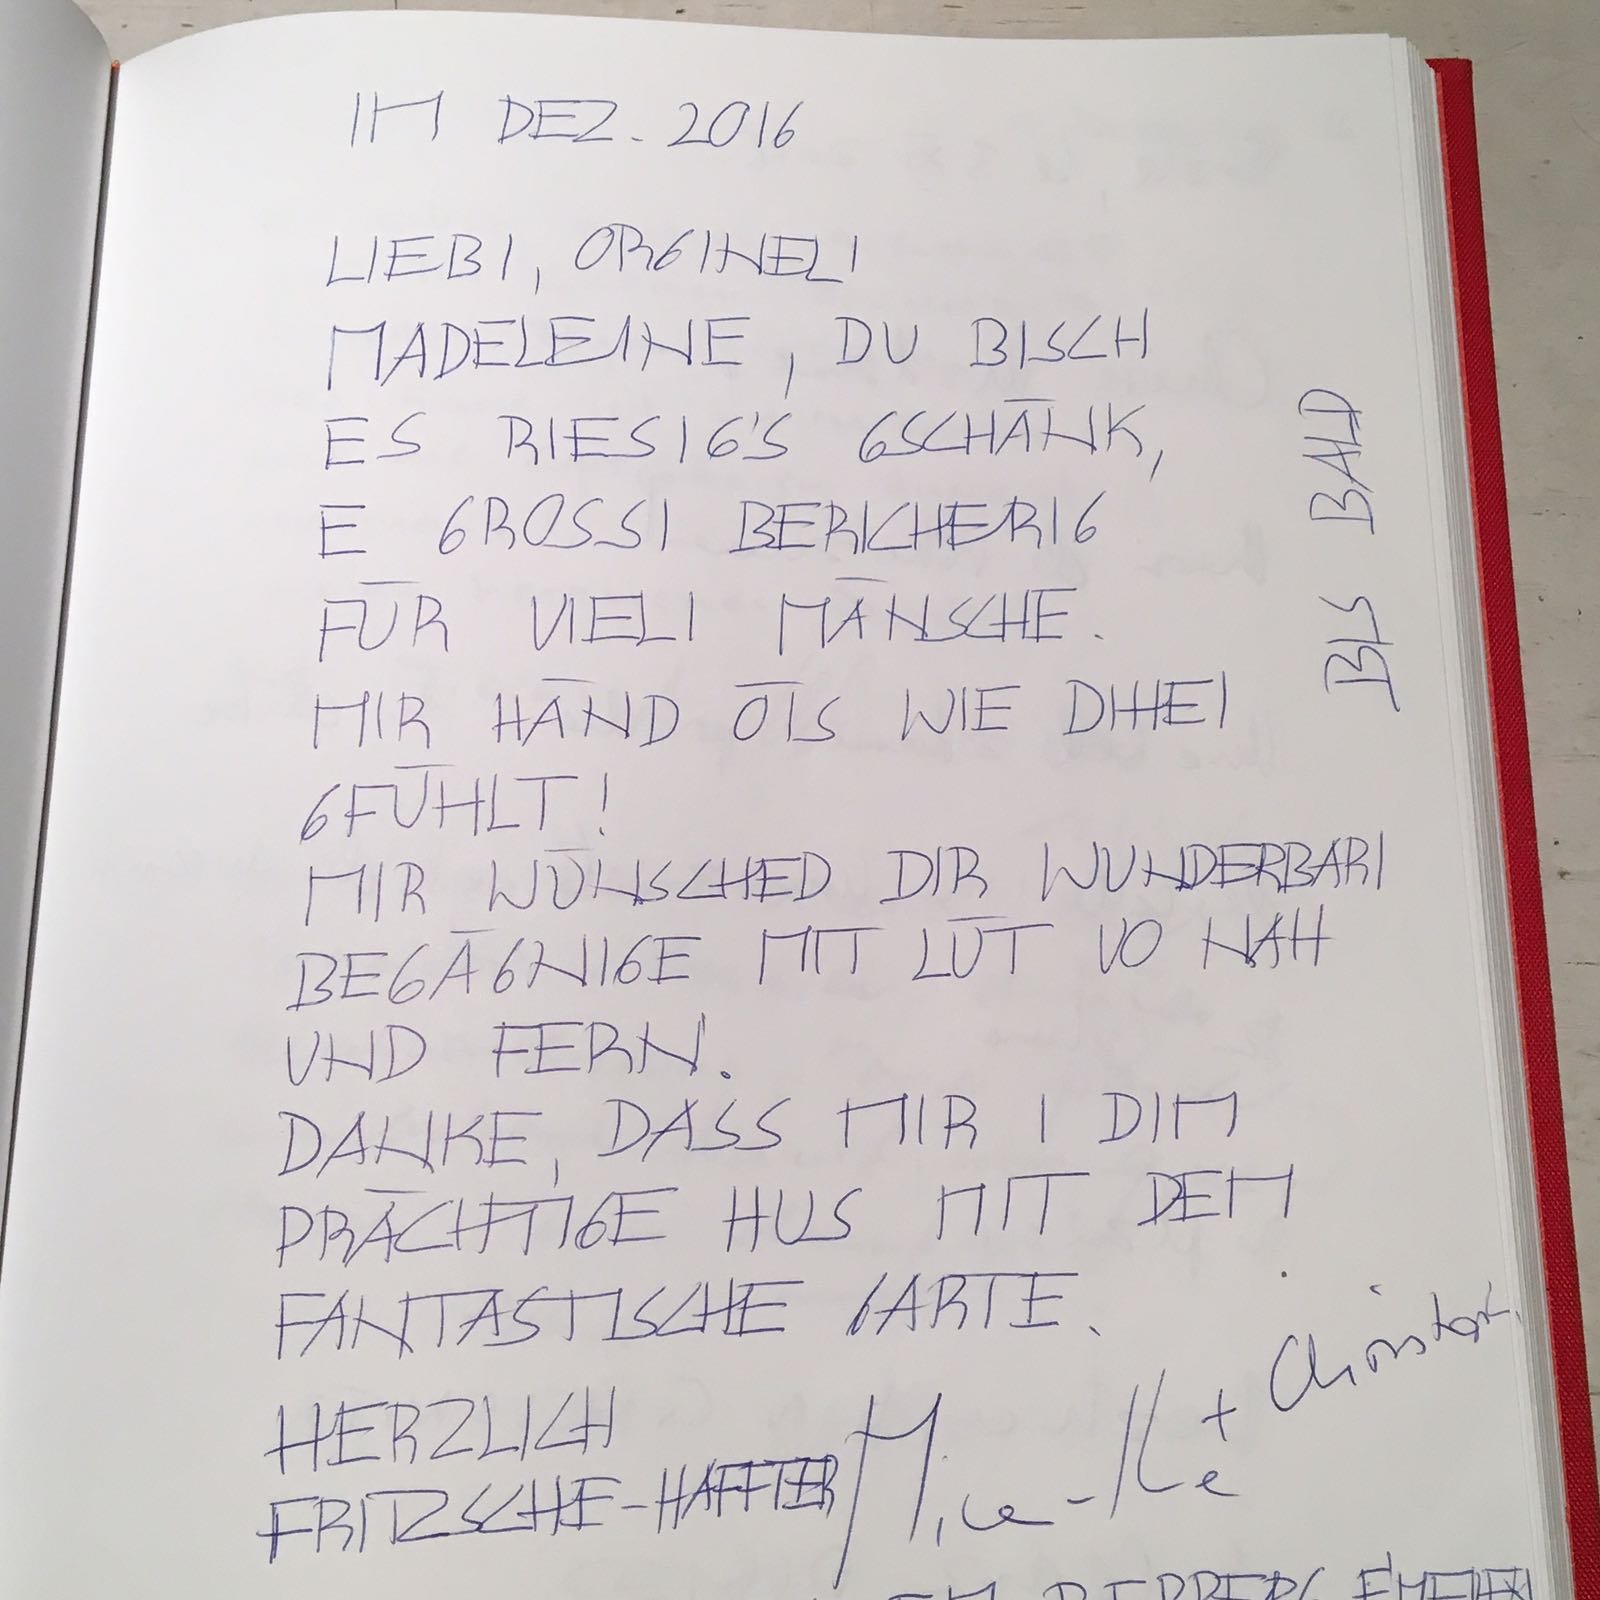 IM DEZ. 2016
LIEBI, ORGINELI
MADELEINE, DU BISCH
ES RIESIG'S GSCHÄNK,
E GROSSI BERICHERIG
FÜR VIELI MÄNSCHE.
MIR HÄND ÖIS WIE DIHEI
GFÜHLT!
MIR WÜNSCHED DIR WUNDERBARI
BEGÄGNIGE MIT LÜT VO NAH
UND FERN.
DANKE, DASS MIR I DIM
PRÄCHTIGE HUS MIT DEM
FANTASTISCHE GARTE.
HERZLICH
FRITZSCHE-HAFFTER
+
BIS BALD